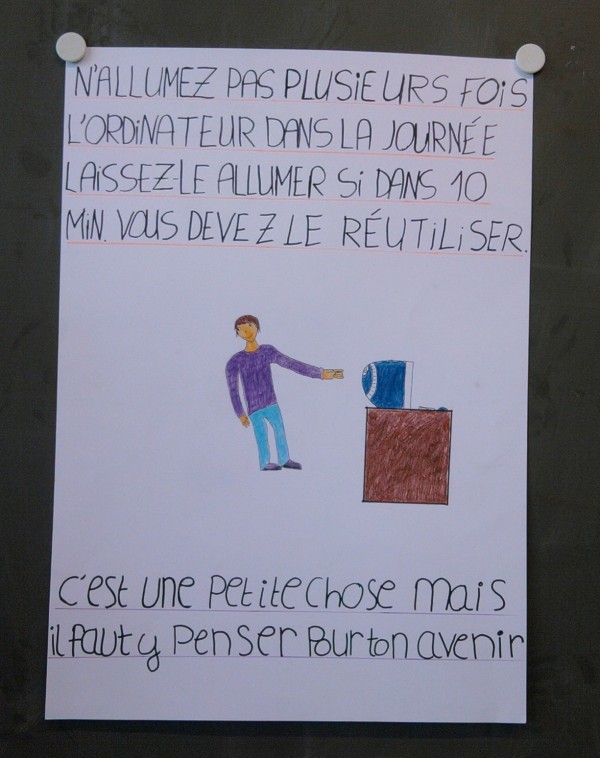 N'ALLUMEZ PAS PLUSIEURS FOIS
L'ORDINATEUR DANS LA JOURNÉE
LAISSEZ-LE ALLUMER SI DANS 10
MIN. VOUS DEVEZ LE RÉUTILISER.
C'est une petite chose mais
il faut y penser pour ton avenir